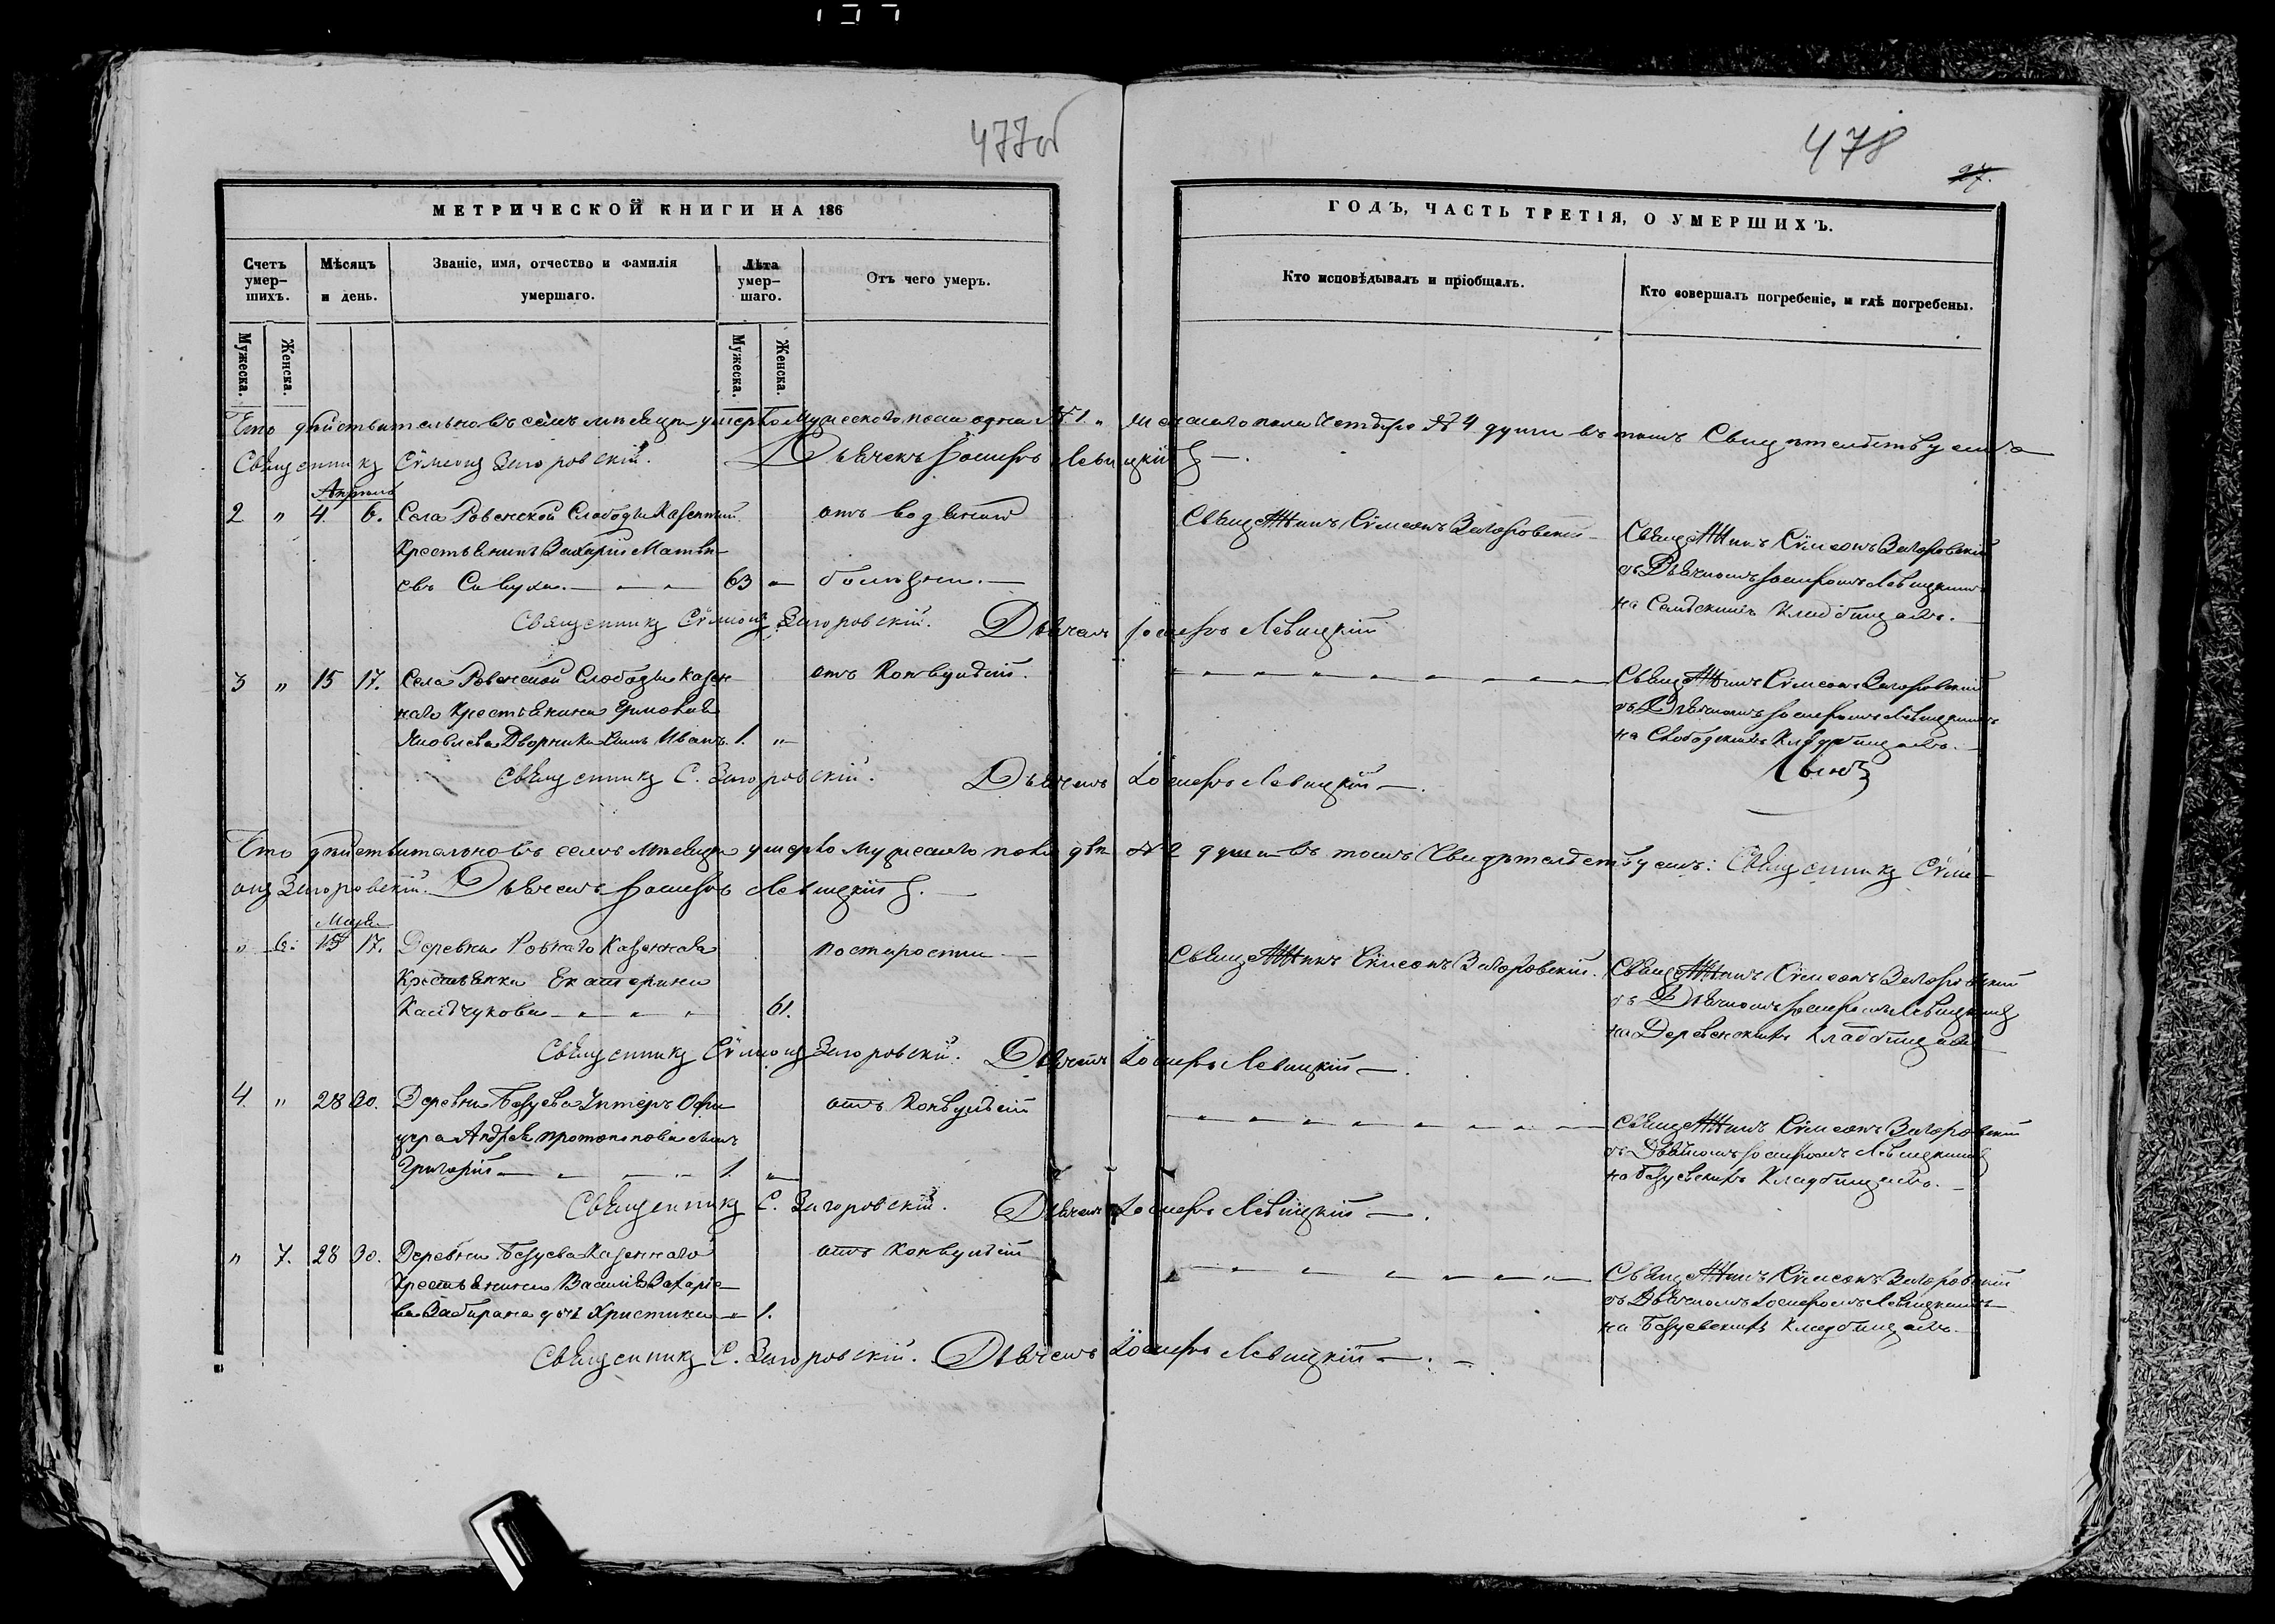 477об
478
27.
МЕТРИЧЕСКОЙ КНИГИ НА 186
ГОДЪ, ЧАСТЬ ТРЕТІЯ, О УМЕРШИХЪ.
Счетъ умер-шихъ.
Мѣсяцъ и день.
Званіе, имя, отчество и фамилія умершаго.
Лѣта умер-шаго.
Отъ чего умеръ.
Кто исповѣдывалъ и пріобщалъ.
Кто совершалъ погребеніе, и гдѣ погребены.
Мужеска.
Женска.
Мужеска.
Женска.
Что дѣйствительно въ семъ мѣсяцѣ умерло мужескаго пола одна №1. и женскаго пола четыре №4 души въ томъ Свидѣтельствуемъ
Священникъ Сѵмеонъ Загоровскій. Дьячекъ Іосифъ Левицкій.
Апрѣль
2 " 4. 6. Села Ровенской Слободы Казенный
Крестьянинъ Захарій Матвѣ-
евъ 63 "
отъ водяной
болѣзни.
Священникъ Сѵмеонъ Загоровскій
Священникъ Сѵмеонъ Загоровскій
съ Дьячкомъ Іосифомъ Левицкимъ
на Сельскомъ Кладбищѣ.
Священникъ Сѵмеонъ Загоровскій. Дьячекъ Іосифъ Левицкій
3 " 15 17. Села Ровенской Слободы Казен-
наго Крестьянина
Яковлева Дворника сынъ Иванъ 1. "
отъ Конвульсій.
Священникъ Сѵмеонъ Загоровскій
съ Дьячкомъ Іосифомъ Левицкимъ
на Кладбищѣ.
Священникъ С. Загоровскій. Дьячекъ Іосифъ Левицкій
Что дѣйствительно въ семъ мѣсяцѣ умерло мужескаго пола двѣ №2 души въ томъ Свидѣтельствуемъ: Священникъ Сѵме-
онъ Загоровскій. Дьячекъ Іосифъ Левицкій.
Мая
" 6. 15 17. Деревни Ровнаго Казенная
Крестьянка Екатерина
61.
по старости
Священникъ Сѵмеонъ Загоровскій.
Священникъ Сѵмеонъ Загоровскій
съ Дьячкомъ Іосифомъ Левицкимъ
на Деревенскомъ Кладбищѣ
Священникъ Сѵмеонъ Загоровскій. Дьячекъ Іосифъ Левицкій
4. " 28 30. Деревни Безуева Унтеръ Офи-
цера Андрея Протопопова сынъ
Григорій 1. "
отъ Конвульсій
Священникъ Сѵмеонъ Загоровскій
съ Дьячкомъ Іосифомъ Левицкимъ
на Безуевскомъ Кладбищѣ.
Священникъ С. Загоровскій. Дьячекъ Іосифъ Левицкій
" 7. 28 30. Деревни Безуева Казеннаго
Крестьянина Василія Захаріе-
ва дочь Христина " 1.
отъ Конвульсій
Священникъ Сѵмеонъ Загоровскій
съ Дьячкомъ Іосифомъ Левицкимъ
на Безуевскомъ Кладбищѣ.
Священникъ С. Загоровскій. Дьячекъ Іосифъ Левицкій